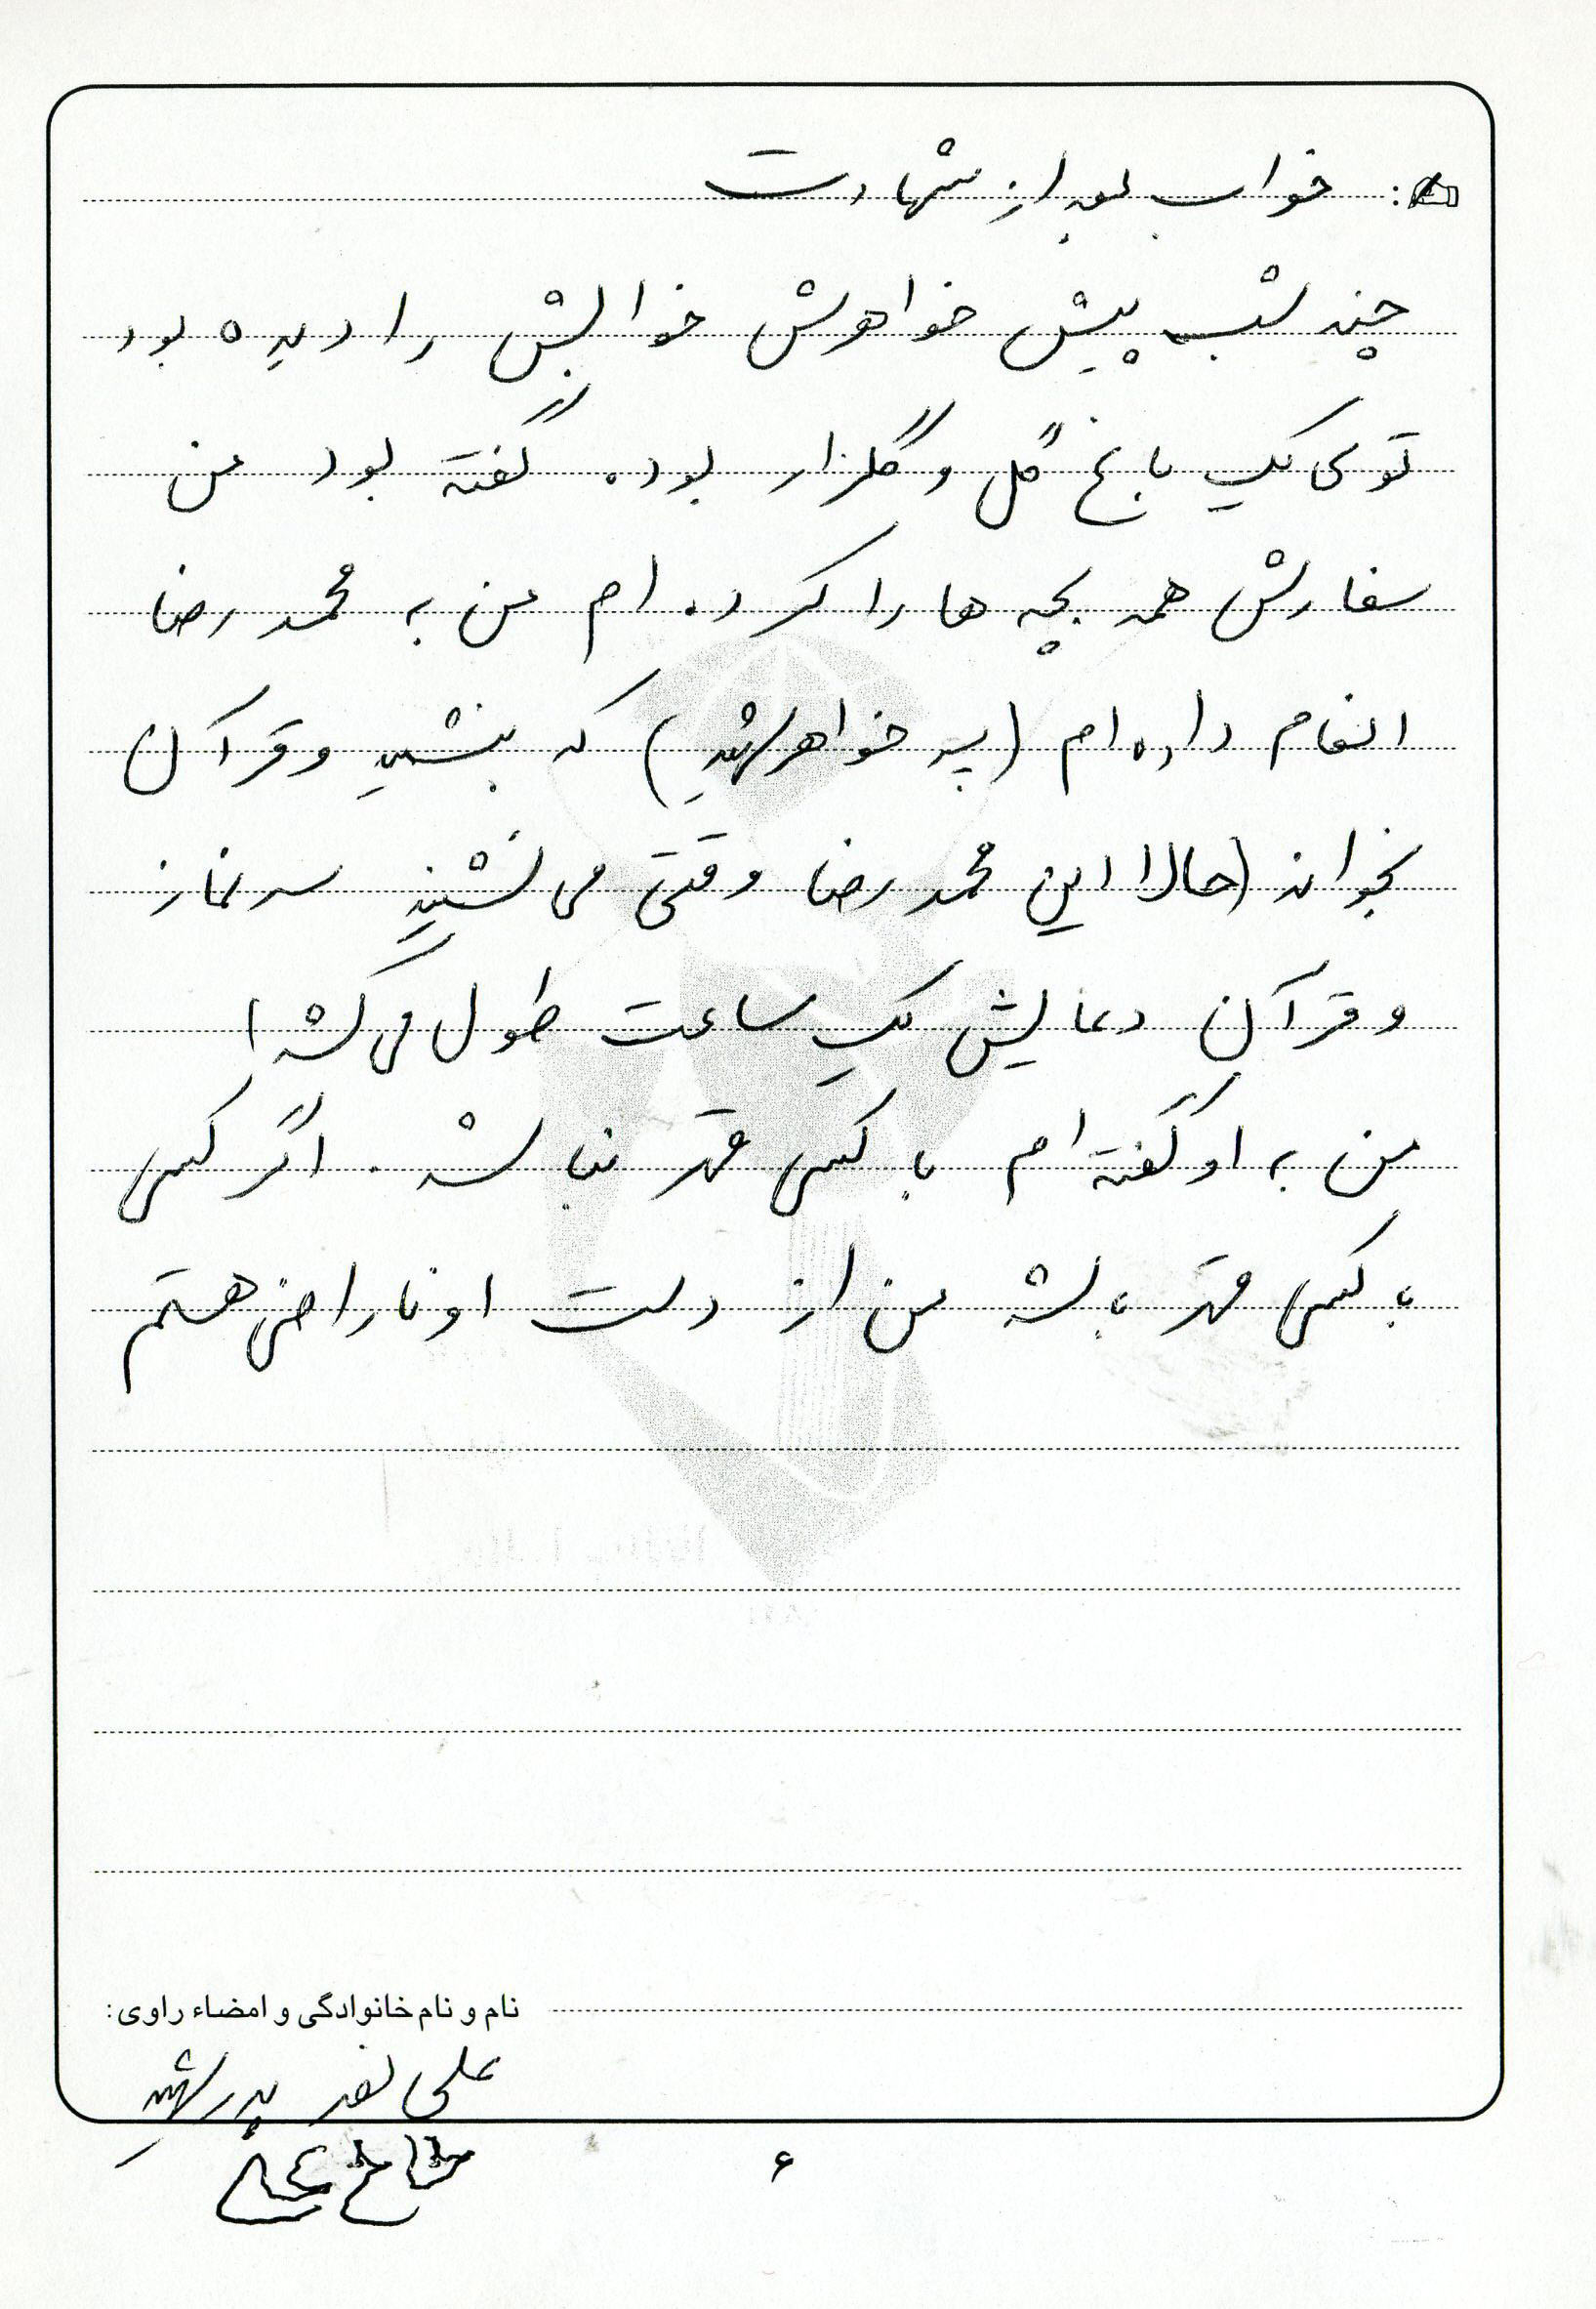 خواب بعد از شهادت
چند شب پیش خواهرش خوابش را دیده بود
توی یک باغ گل و گلزار بوده گفته بود من
سفارش همه بچه ها را کرده ام من به محمد رضا
انعام داده ام (پسر خواهر شهید) که بنشیند و قرآن
بخواند (حالا این محمد رضا وقتی می نشیند سر نماز
و قرآن دعایش یک ساعت طول می کشد)
من به او گفته ام با کسی قهر نباشد. اگر کسی
با کسی قهر باشد من از دست او ناراضی هستم
نام و نام خانوادگی و امضاء راوی:
علی پدر شهید
۶